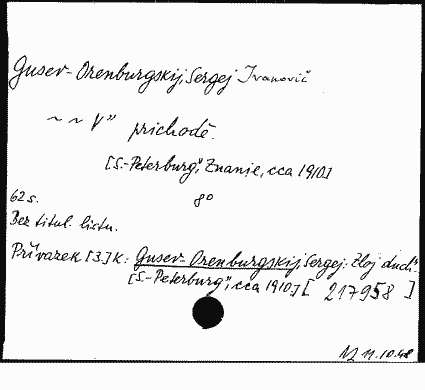 Gusev-Orenburgskij, Sergej Ivanovič
~ ~ V" prichodě.
[S.-Peterburg", Znanie, cca 1910]
62 s. 8°
Bez titul. listu.
Přívazek [3.] k: Gusev-Orenburgskij, Sergej: Zloj duch".
[S.-Peterburg", cca 1910.] [ 217958 ]
11.10.48